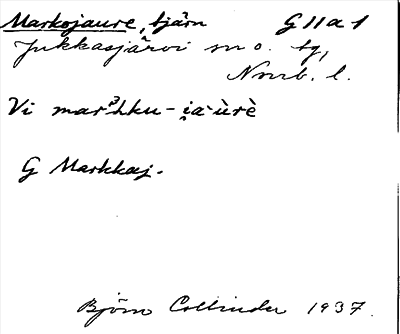 Markojaure, tjärn G 11 a 1
Jukkasjärvi sn o. tg,
Nrrb. l.
Vi marᵊhku-i̯a·ùrè
G Markkaj.
Björn Collinder 1937.